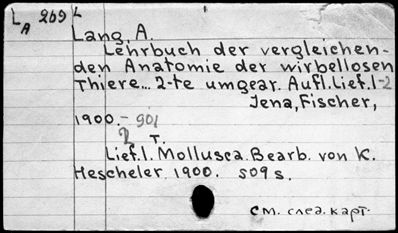 L A 269 L
Lang, A.
Lehrbuch der vergleichen-
den Anatomie der wirbellosen
Thiere... 2-te umgear. Aufl. Lief. 1-2
Jena, Fischer,
1900.-901
2 T.
Lief. 1. Mollusca. Bearb. von K.
Hescheler. 1900. 509 s.
см. след. карт.